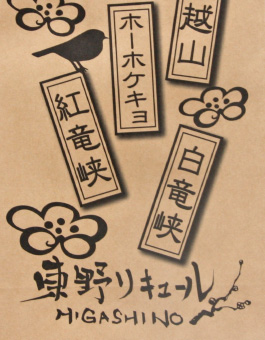 越山
ホーホケキョ
紅竜峡
白竜峡
東野リキュール
HIGASHINO